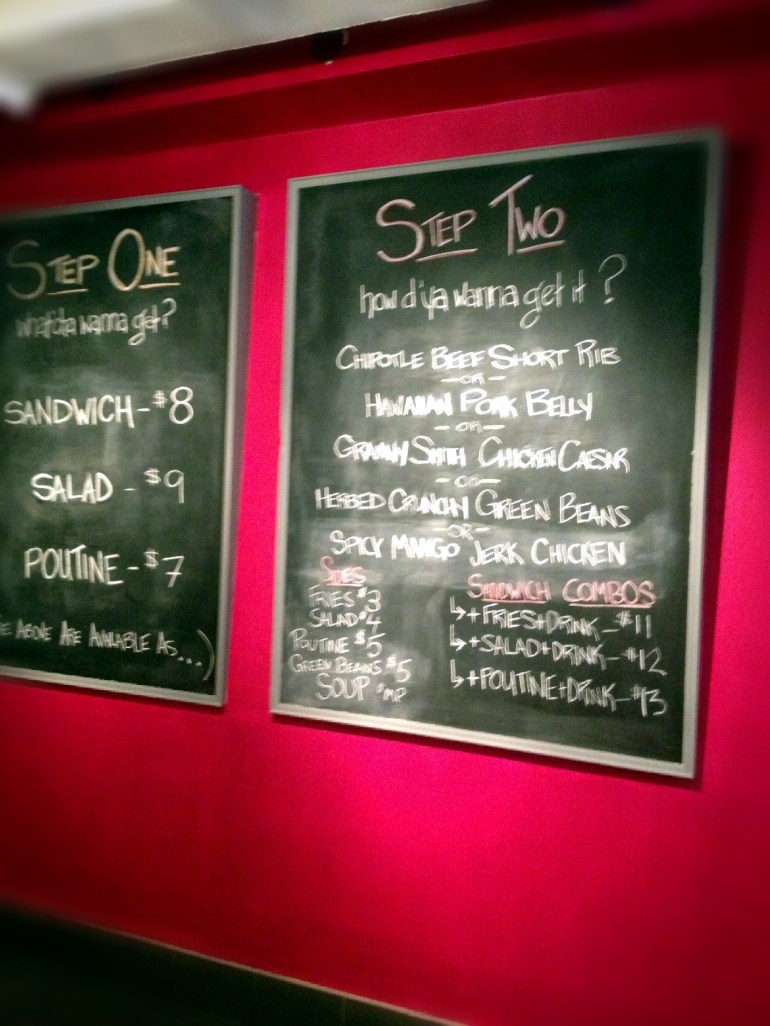 STEP ONE
whatcha wanna get?
SANDWICH - $8
SALAD - $9
POUTINE - $7
ABOVE ARE AVAILABLE AS...)
STEP TWO
how d'ya wanna get it?
CHIPOTLE BEEF SHORT RIB
- OR -
HAWAIIAN PORK BELLY
- OR -
GRANNY SMITH CHICKEN CAESAR
- OR -
HERBED CRUNCHY GREEN BEANS
- OR -
SPICY MANGO JERK CHICKEN
SIDES
FRIES $3
SALAD $4
POUTINE $5
GREEN BEANS $5
SOUP $MP
SANDWICH COMBOS
↳ + FRIES + DRINK - $11
↳ + SALAD + DRINK - $12
↳ + POUTINE + DRINK - $13